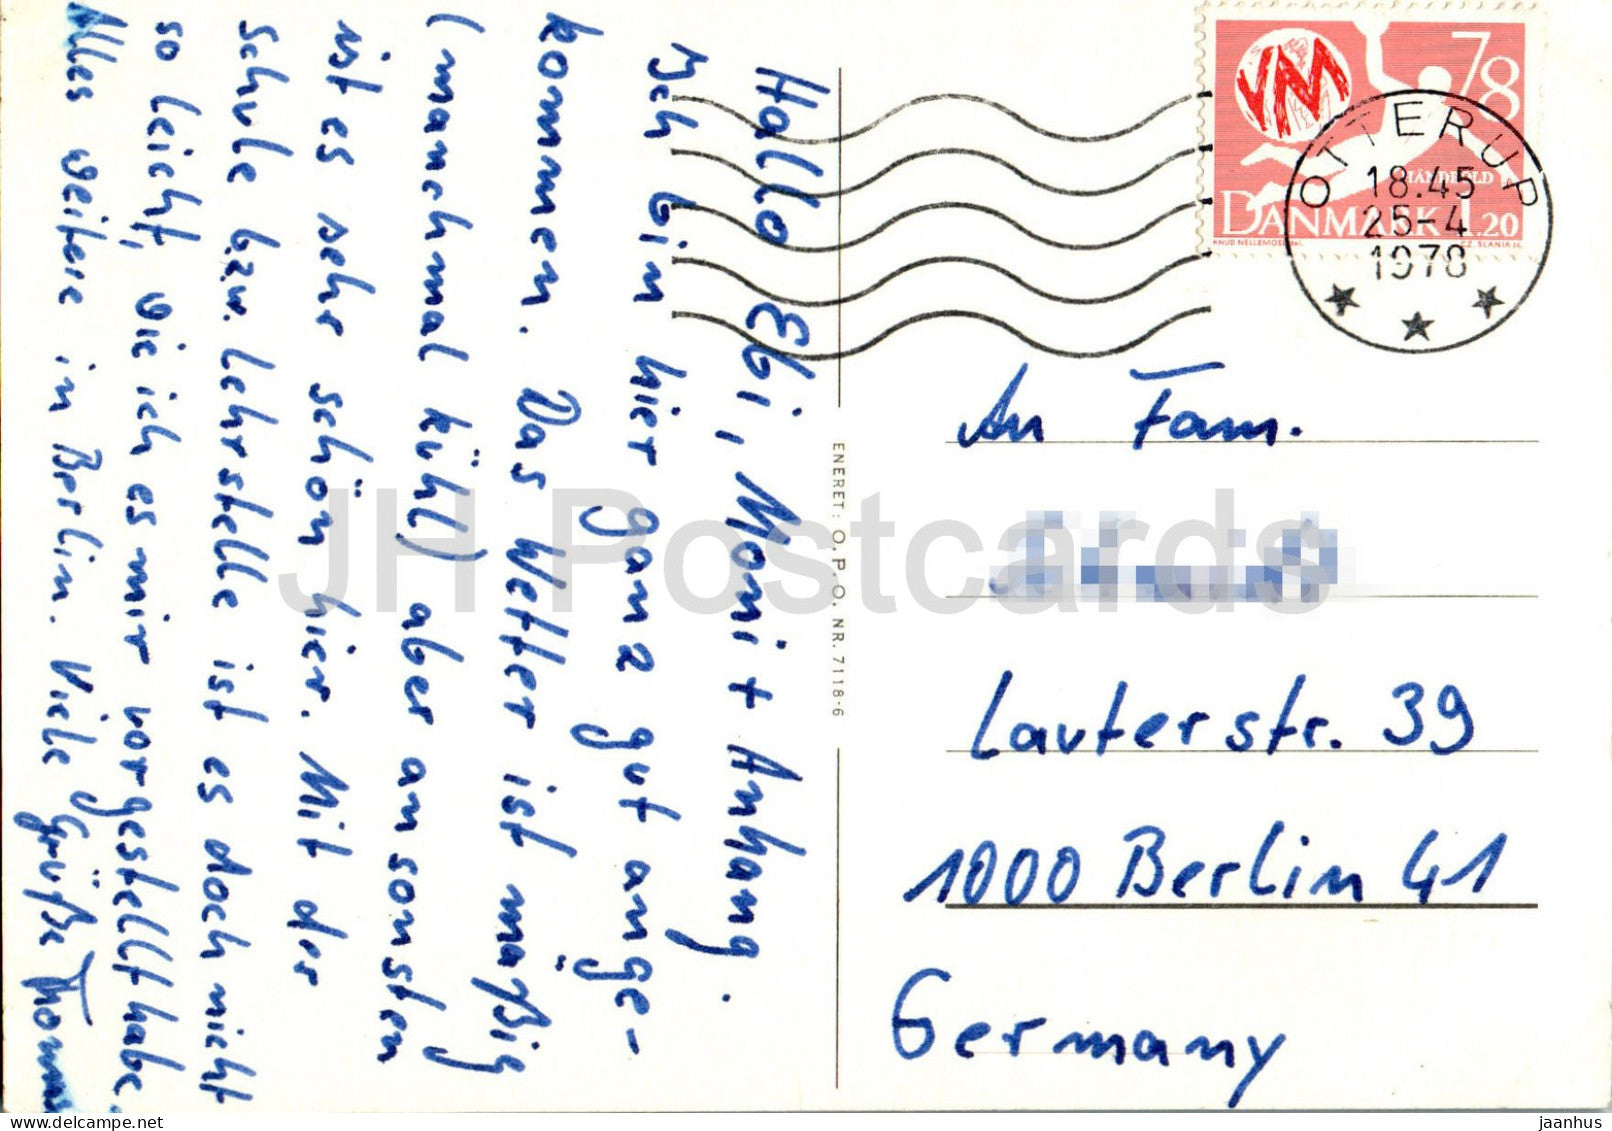 Hallo Ebi, Moni + Anhang.
Ich bin hier ganz gut ange-
kommen. Das Wetter ist mäßig
(manchmal kühl) aber ansonsten
ist es sehr schön hier. Mit der
Schule bzw. Lehrstelle ist es doch nicht
so leicht, wie ich es mir vorgestellt habe.
Alles weitere in Berlin. Viele Grüße Thomas
ENERET: O.P.O. NR. 7118-6
VM
78
HÅNDBOLD
DANMARK 1.20
KNUD NELLEMOSE del.
CZ. SLANIA sc.
OTTERUP
18.45
25-4
1978
An Fam.
Lauterstr. 39
1000 Berlin 41
Germany
JH Postcards
www.delcampe.net
jaanhus